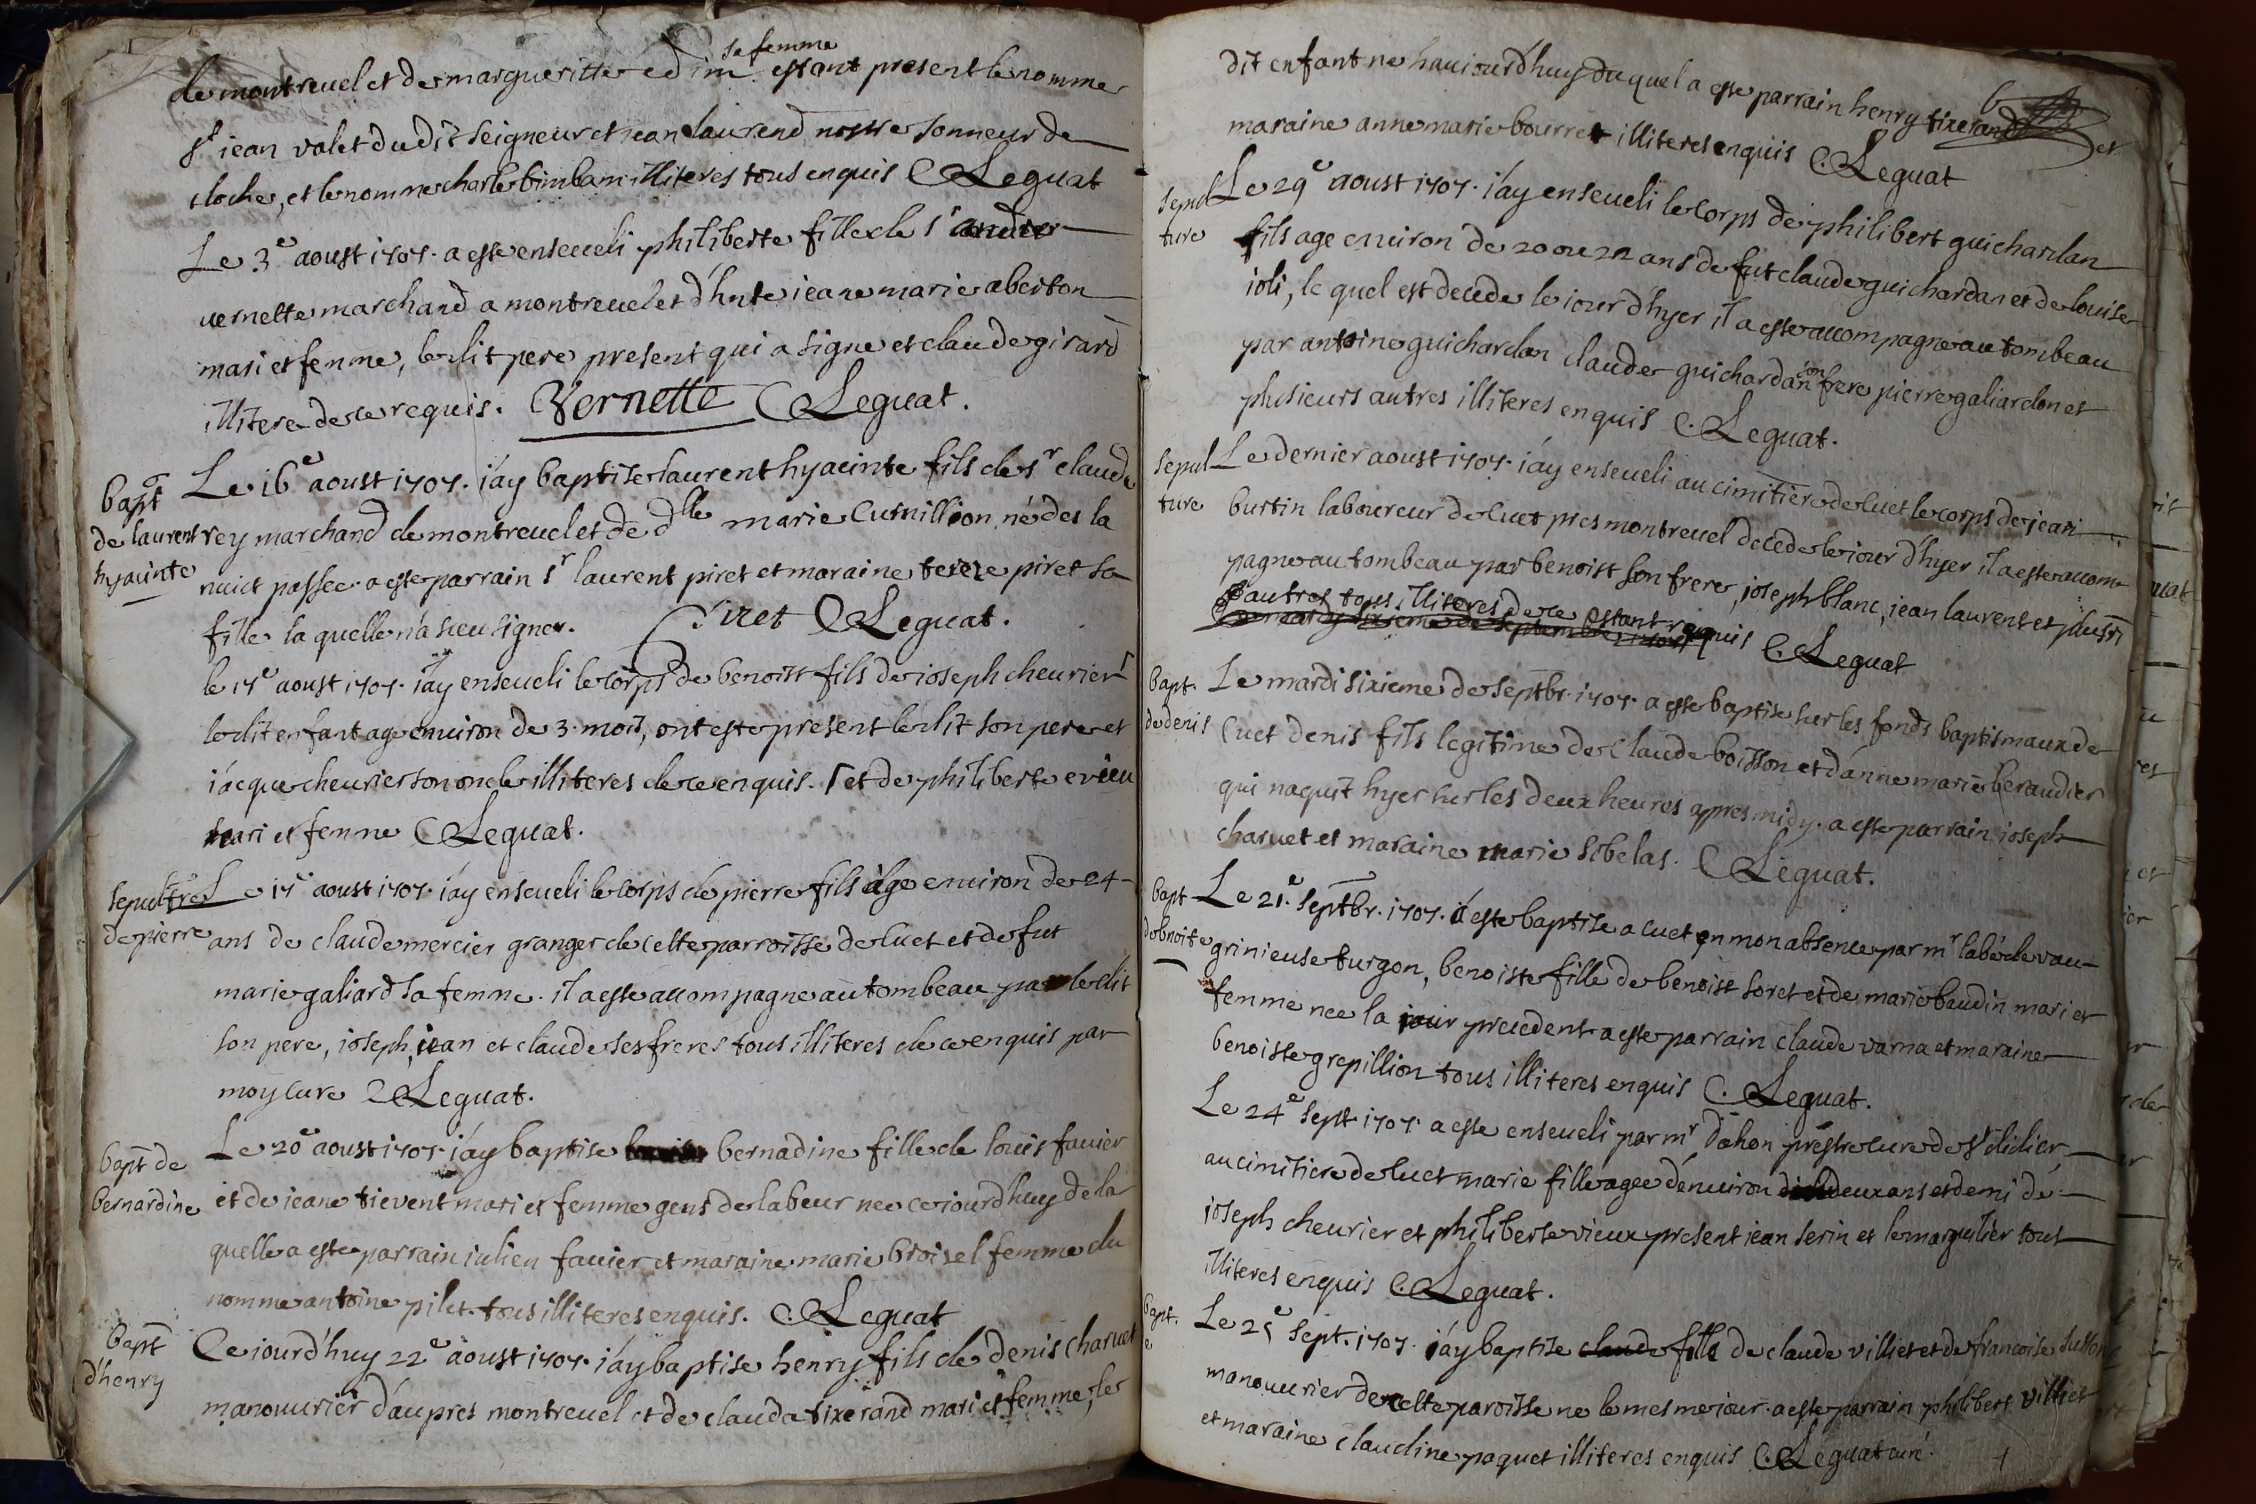 de montreuel et de margueritte edim sa femme estant present le nomme
st jean valet dudit seigneur et jean laurend nostre sonneur de
cloche, et le nomme charle bimbam illiteres tous enquis C Leguat
Le 3e aoust 1707. a este enseueli philiberte fille de sr
uernette marchand a montreuel et d'hnte jeane marie aberton
mari et femme, le dit pere present qui a signe et claude girard
illitere de ce requis. Vernette C Leguat.
bapt
de laurent
hyacinte
Le 16e aoust 1707. j'ay baptise laurent hyacinte fils de sr claude
rey marchand de montreuel et de dlle marie Curnillion né des la
nuict passee. a este parrain sr laurent piret et maraine tereze piret sa
fille la quelle n'a sceu signer. Piret C Leguat.
le 17e aoust 1707. j'ay enseueli le corps de benoist fils de joseph cheurier
le dit enfant age enuiron de 3. mois, ont este present le dit son pere et
jacque cheurier son oncle illiteres de ce enquis. et de philiberte evieu
mari et femme C Leguat.
sepultre
de pierre
Le 17e aoust 1707. j'ay enseueli le corps de pierre fils age enuiron de 24
ans de claude mercier granger de cette parroisse de cuet et de fut
marie galiard sa femme. il a este accompagne au tombeau par le dit
son pere, joseph, jean et claude ses freres tous illiteres de ce enquis par
moy cure C Leguat.
bapt de
bernardine
Le 20e aoust 1707. j'ay baptise bernadine fille de louis fauier
et de jeane tievent mari et femme gens de labeur nee ce jourdhuy de la
quelle a este parrain julien fauier et maraine marie broisel femme du
nomme antoine pilet. tous illiteres enquis. C. Leguat
bapt
d'henry
Ce jourd'huy 22e aoust 1707. j'ay baptise henry fils de denis charuet
manouurier d'aupres montreuel et de clauda tixerand mari et femme, le
6
dit enfant ne haujourdhuy duquel a este parrain henry tixerand et
maraine anne marie bourret illiteres enquis C. Leguat
sepul
ture
Le 29e aoust 1707. j'ay enseueli le corps de philibert guichardan
fils age enuiron de 20 ou 22 ans de fut claude guichardan et de louise
joli, le quel est decede le jour d'hyer il a este accompagne au tombeau
par antoine guichardan claude guichardan son frere pierre galiardon et
plusieurs autres illiteres enquis C. Leguat.
sepul
ture
Le dernier aoust 1707. j'ay enseueli au cimitiere de cuet le corps de jean
burtin laboureur de cuet pres montreuel decede le jour d'hyer il a este accom
pagne au tombeau par benoist son frere, joseph blanc, jean laurent et plusrs
autres tous illiteres de ce estant requis C. Leguat
bapt.
de denis
Le mardi sixieme de septbr. 1707. a este baptise sur les fonds baptismaux de
Cuet denis fils legitime de Claude boisson et d'anne marie beraudier
qui naquit hyer sur les deux heures apres midy. a este parrain joseph
charuet et maraine marie sibelas. C Leguat.
bapt
de bnoite
Le 21e septbr. 1707. a este baptise a cuet en mon absence par mr labé de vau
grinieuse turgon, benoiste fille de benoist soret et de marie baudin mari et
femme nee la jour precedent a este parrain claude varna et maraine
benoiste grepillion tous illiteres enquis C. Leguat.
Le 24e sept 1707. a este enseueli par mr dahon prestre cure de st didier
au cimitiere de cuet marie fille agee d'enuiron deux ans et demi de
joseph cheurier et philiberte vieux present jean serin et le margulier tous
illiteres enquis C. Leguat.
bapt.
Le 25e sept. 1707. j'ay baptise claude fille de claude villiet et de francoise
manouurier de cette paroisse ne le mesme jour. a este parrain philibert villiet
et maraine claudine paquet illiteres enquis C. Leguat curé.